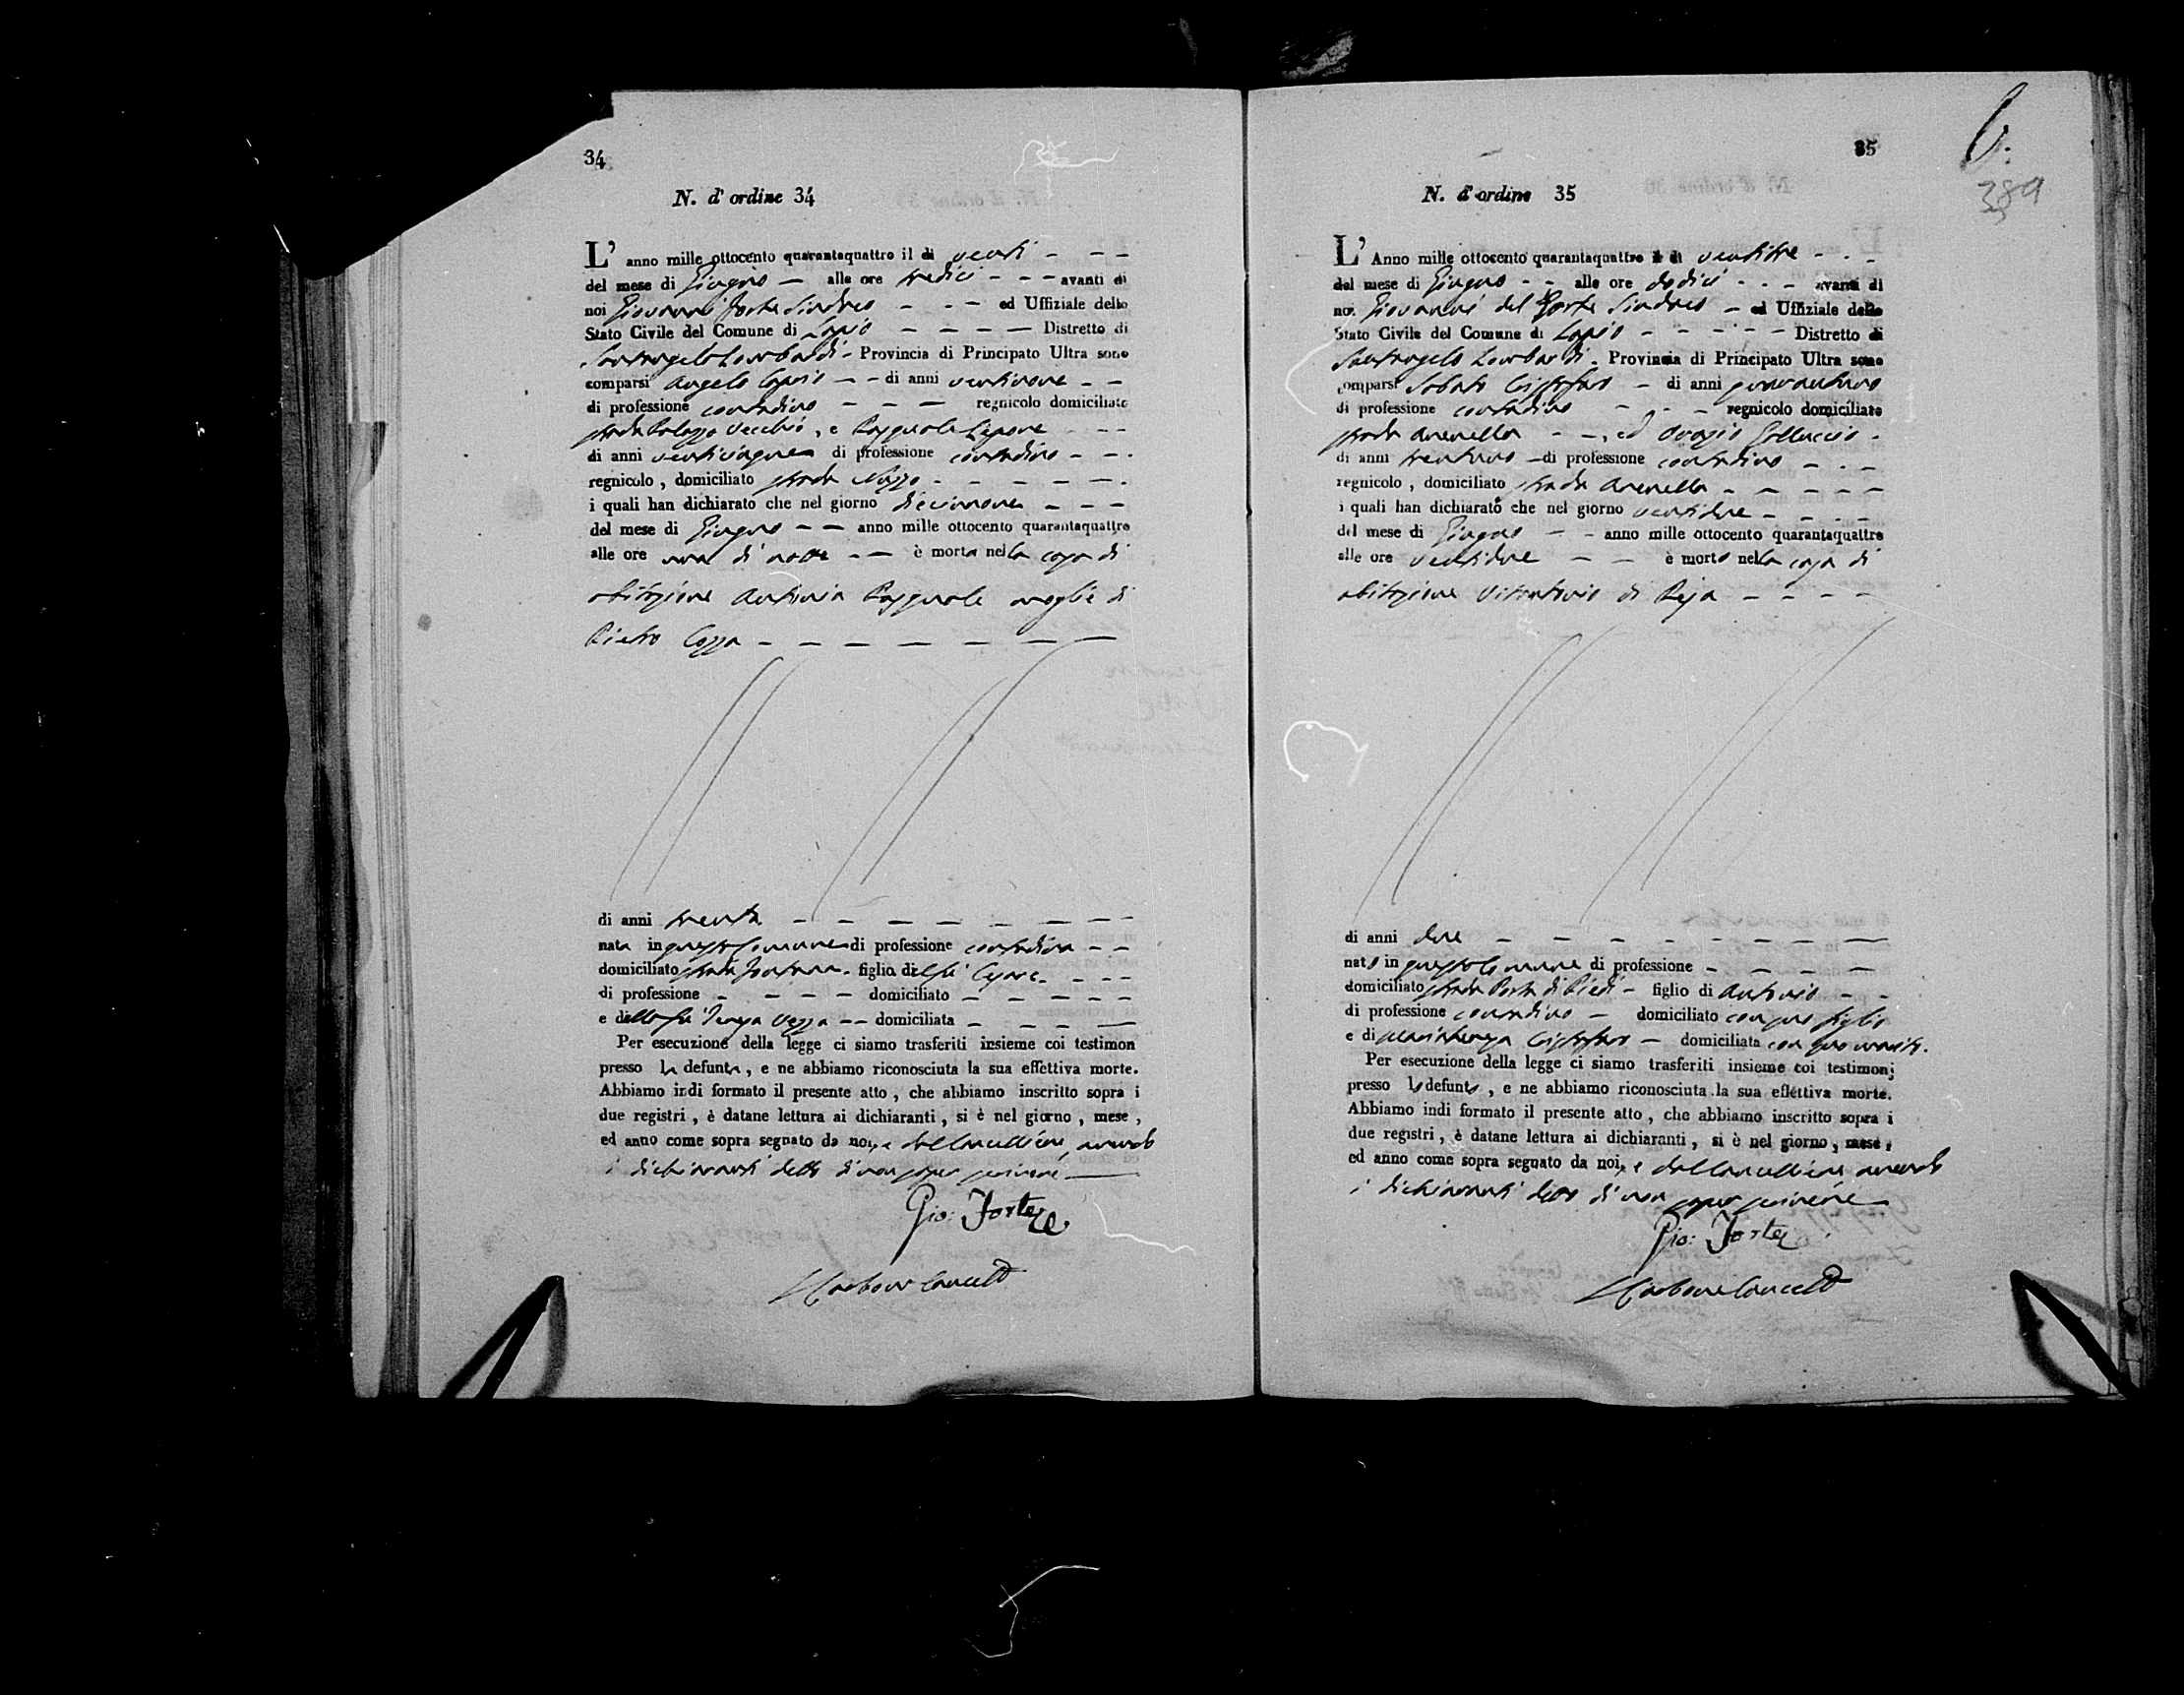 34
N. d' ordine 34
L' anno mille ottocento quarantaquattro il di venti
del mese di Giugno alle ore tredici avanti di
noi Giovanni Forte Sindaco ed Uffiziale dello
Stato Civile del Comune di Lapio Distretto di
Santangelo Lombardi Provincia di Principato Ultra sono
comparsi Angelo di anni ventinove
di professione contadino regnicolo domiciliato
strada Palazzo Vecchio, e Pasquale Lepore
di anni venticinque di professione contadino
regnicolo, domiciliato strada
i quali han dichiarato che nel giorno diecinnove
del mese di Giugno anno mille ottocento quarantaquattro
alle ore una di notte è morta nella casa di
abitazione Antonia Pasquale moglie di
Pietro
di anni trenta
nata in questo Comune di professione contadina
domiciliato strada Fontana figlia del fù Cesare
di professione domiciliato
e della fù Teresa domiciliata
Per esecuzione della legge ci siamo trasferiti insieme coi testimon
presso la defunta, e ne abbiamo riconosciuta la sua effettiva morte.
Abbiamo indi formato il presente atto, che abbiamo inscritto sopra i
due registri, è datane lettura ai dichiaranti, si è nel giorno, mese,
ed anno come sopra segnato da noi, e dal Cancelliere, avendo
i dichiaranti detto di non saper scrivere
Gio: Forte
Carbone Cancell
35
6.
389
N. d'ordine 35
L' Anno mille ottocento quarantaquattro il di ventitre
del mese di Giugno alle ore dodici avanti di
noi Giovanni del Forte Sindaco ed Uffiziale dello
Stato Civile del Comune di Lapio Distretto di
Santangelo Lombardi Provincia di Principato Ultra sono
comparsi Sabato Cristofaro di anni quarantuno
di professione contadino regnicolo domiciliato
strada Arenella, ed Orazio Colluccio
di anni trentuno di professione contadino
regnicolo, domiciliato strada Arenella
i quali han dichiarato che nel giorno ventidue
del mese di Giugno anno mille ottocento quarantaquattro
alle ore ventidue è morto nella casa di
abitazione Vitantonio di
di anni due
nato in questo Comune di professione
domiciliato strada Porta di Piedi figlio di Antonio
di professione contadino domiciliato con suo figlio
e di Mariateresa Cristofaro domiciliata con suo marito.
Per esecuzione della legge ci siamo trasferiti insieme coi testimonj
presso lo defunto, e ne abbiamo riconosciuta la sua effettiva morte.
Abbiamo indi formato il presente atto, che abbiamo inscritto sopra i
due registri, è datane lettura ai dichiaranti, si è nel giorno, mese,
ed anno come sopra segnato da noi, e dal Cancelliere avendo
i dichiaranti detto di non saper scrivere
Gio: Forte
Carbone Cancell